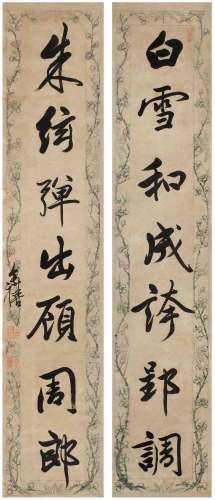 白雪和成誇郢調
朱絃彈出顧周郎